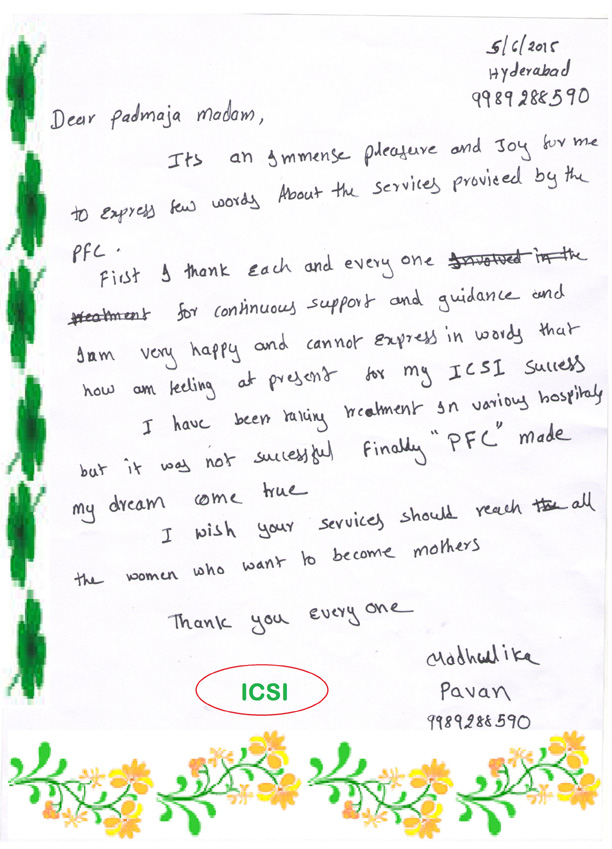 5/6/2015
Hyderabad
9989288590
Dear Padmaja Madam,
Its an Immense pleasure and Joy for me
to express few words About the services provided by the
PFC.
First I thank Each and every one Involved in the
treatment for continuous support and guidance and
I am very happy and cannot Express in words that
how am feeling at present for my ICSI success
I have been taking treatment In various hospitals
but it was not successful Finally "PFC" made
my dream come true
I wish your services should reach the all
the women who want to become mothers
Thank you every one
Madhulika
Pavan
9989288590
ICSI